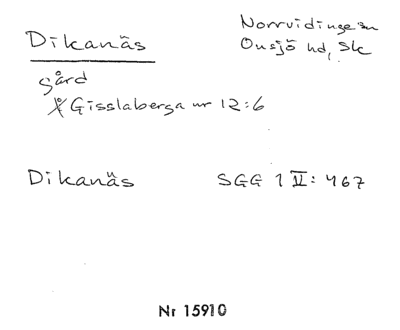 Dikanäs
Norrvidinge sn
Onsjö hd, Sk
gård
Gisslaberga nr 12:6
Dikanäs
SGG 1 II: 467
Nr 15910